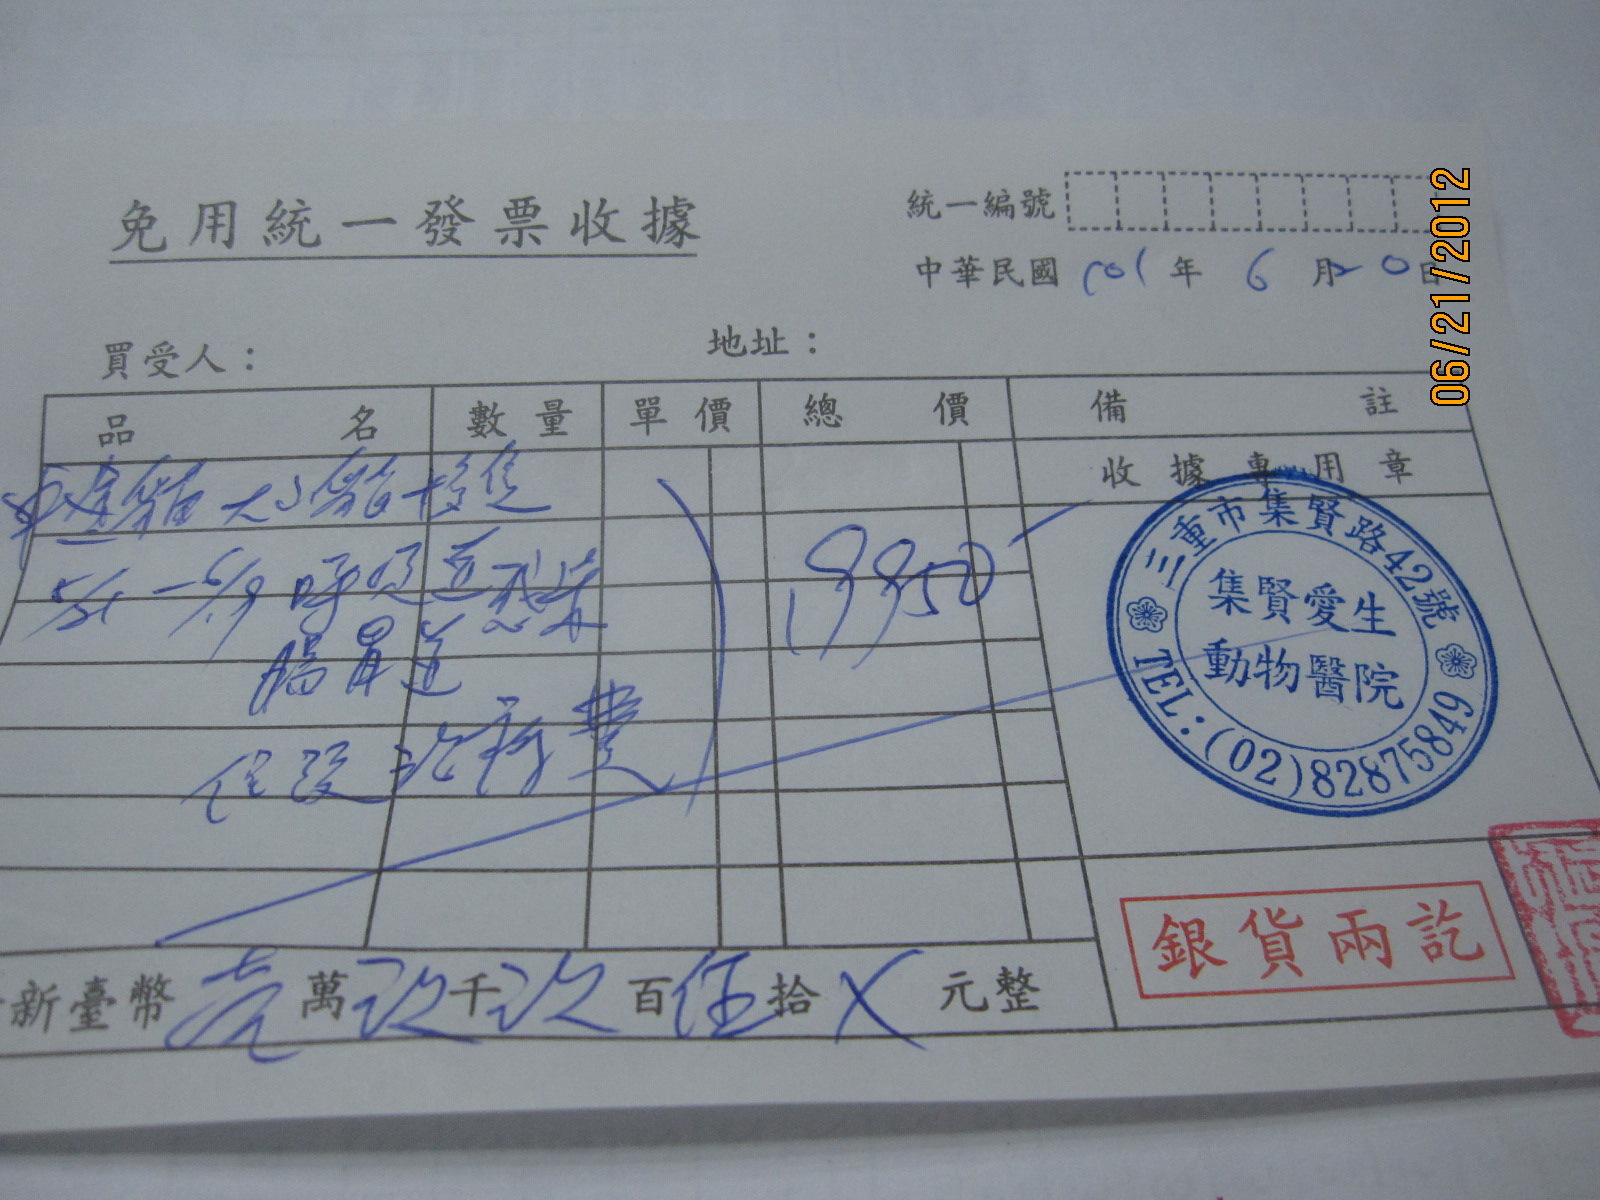 免用統一發票收據
統一編號
中華民國 101 年 6 月 20 日
06/21/2012
買受人：
地址：
品名 數量 單價 總價 備註
收據專用章
5/21 - 6/19 呼吸道感染
腸胃道
住院治療費
19950
三重市集賢路42號
集賢愛生
動物醫院
TEL：(02)82875849
銀貨兩訖
新臺幣壹萬玖千玖百伍拾X元整